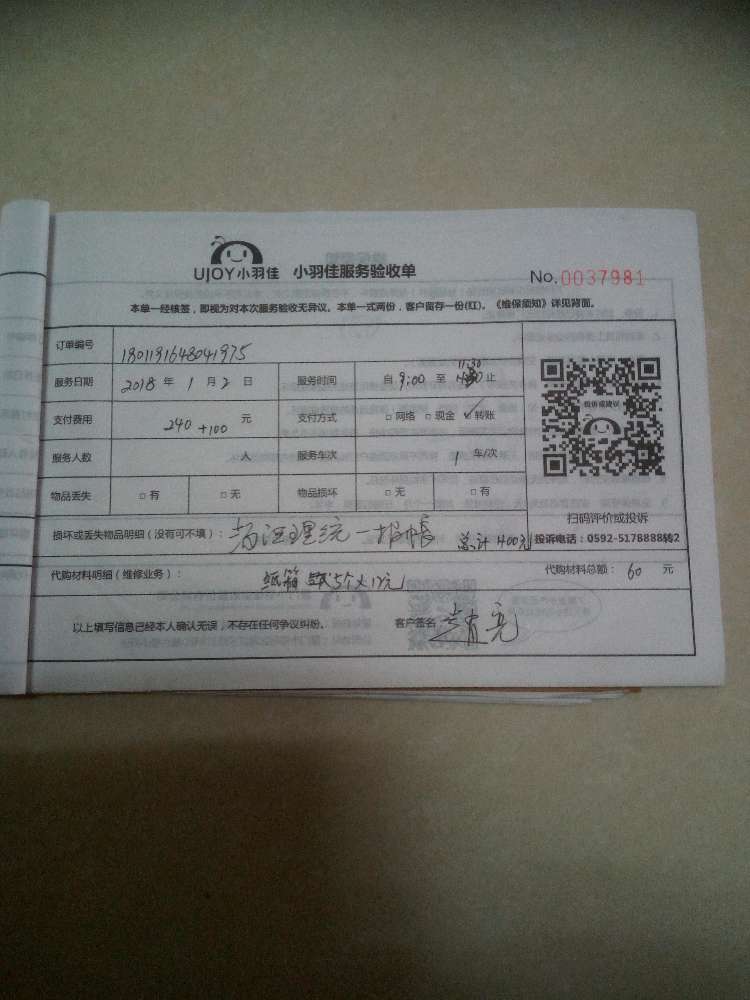 UJOY小羽佳 小羽佳服务验收单 No.0037981
本单一经核签，即视为对本次服务验收无异议。本单一式两份，客户留存一份(红)。《维保须知》详见背面。
订单编号 1801191648041975
服务日期 2018 年 1 月 2 日 服务时间 自 9:00 至 11:30 止
支付费用 240 +100 元 支付方式 □ 网络 □ 现金 ☑ 转账
服务人数 人 服务车次 1 车/次
物品丢失 □ 有 □ 无 物品损坏 □ 无 □ 有
投诉或建议
扫码评价或投诉
投诉电话：0592-5178888转2
损坏或丢失物品明细（没有可不填）： 理统一报帐 总计400元
代购材料明细（维修业务）： 纸箱 5个×12元 代购材料总额： 60 元
以上填写信息已经本人确认无误，不存在任何争议纠纷。 客户签名